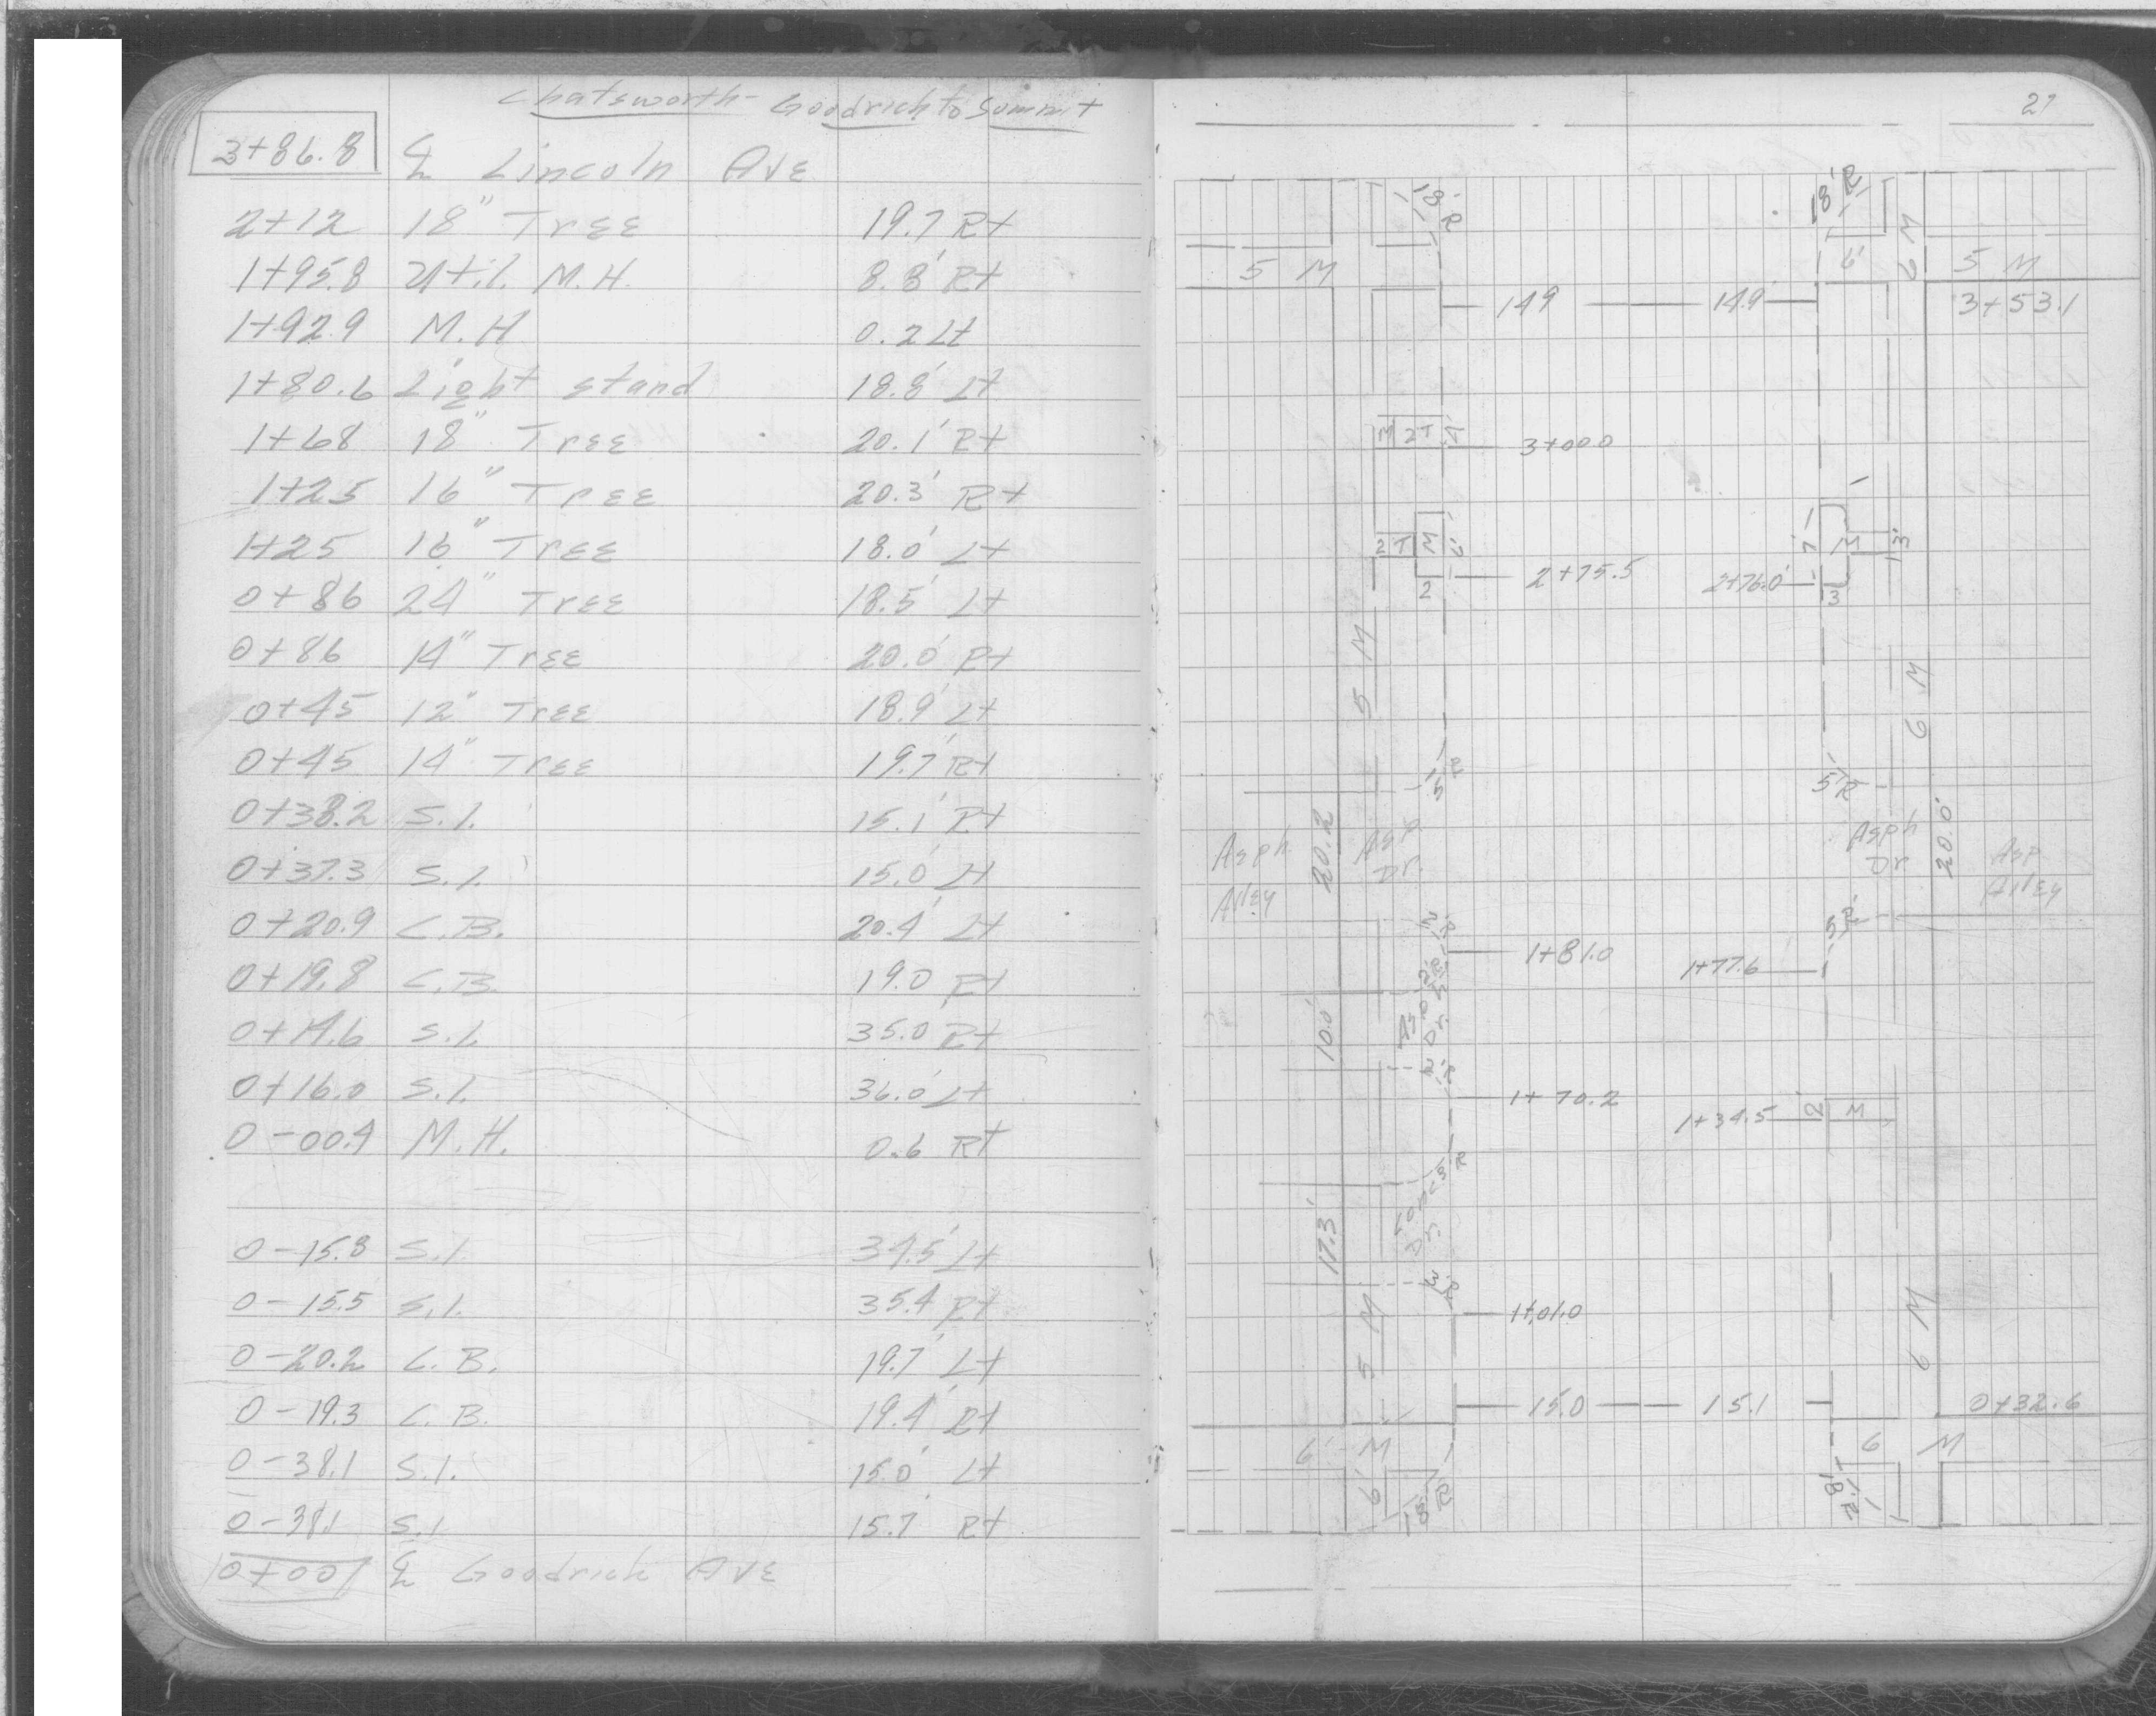 Chatsworth - Goodrich to Summit
3+86.8 ℄ Lincoln Ave
2+12 18" Tree 19.7 Rt
1+95.8 Util. M.H. 8.8' Rt
1+92.9 M.H 0.2 Lt
1+80.6 Light stand 18.8' Lt
1+68 18" Tree 20.1' Rt
1+25 16" Tree 20.3' Rt
1+25 16" Tree 18.0' Lt
0+86 24" Tree 18.5' Lt
0+86 14" Tree 20.0' Rt
0+45 12" Tree 18.9' Lt
0+45 14" Tree 19.7' Rt
0+38.2 S.I. 15.1' Rt
0+37.3 S.I. 15.0' Lt
0+20.9 C.B. 20.4' Lt
0+19.8 C.B. 19.0 Rt
0+14.6 S.I. 35.0' Rt
0+16.0 S.I. 36.0' Lt
0-00.4 M.H. 0.6 Rt
0-15.8 S.I. 34.5' Lt
0-15.5 S.I. 35.4 Rt
0-20.2 C.B. 19.7' Lt
0-19.3 C.B. 19.4' Rt
0-38.1 S.I. 15.0' Lt
0-38.1 S.I. 15.7' Rt
0+00 ℄ Goodrich Ave
27
18' R 18' R
5 M 6' 6 M 5 M
14.9 14.9 3+53.1
M 2 T 3+00.0
2 T M 6' 7' M 3'
2 2+75.5 2+76.0' 3
5 M 6 M
5' R 5' R
20.2 20.0'
Asph. Alley Asp. Dr. Asph Dr. Asp. Alley
2' R 5' R
1+81.0 1+77.6
2' R
10.0' Asp Dr.
2' R
1+70.2 1+34.5 2' M
3' R
17.3' Conc Dr.
3' R
1+01.0
5 M 6 M
15.0 15.1 0+32.6
6' M 6 M
6' 18' R 18' R